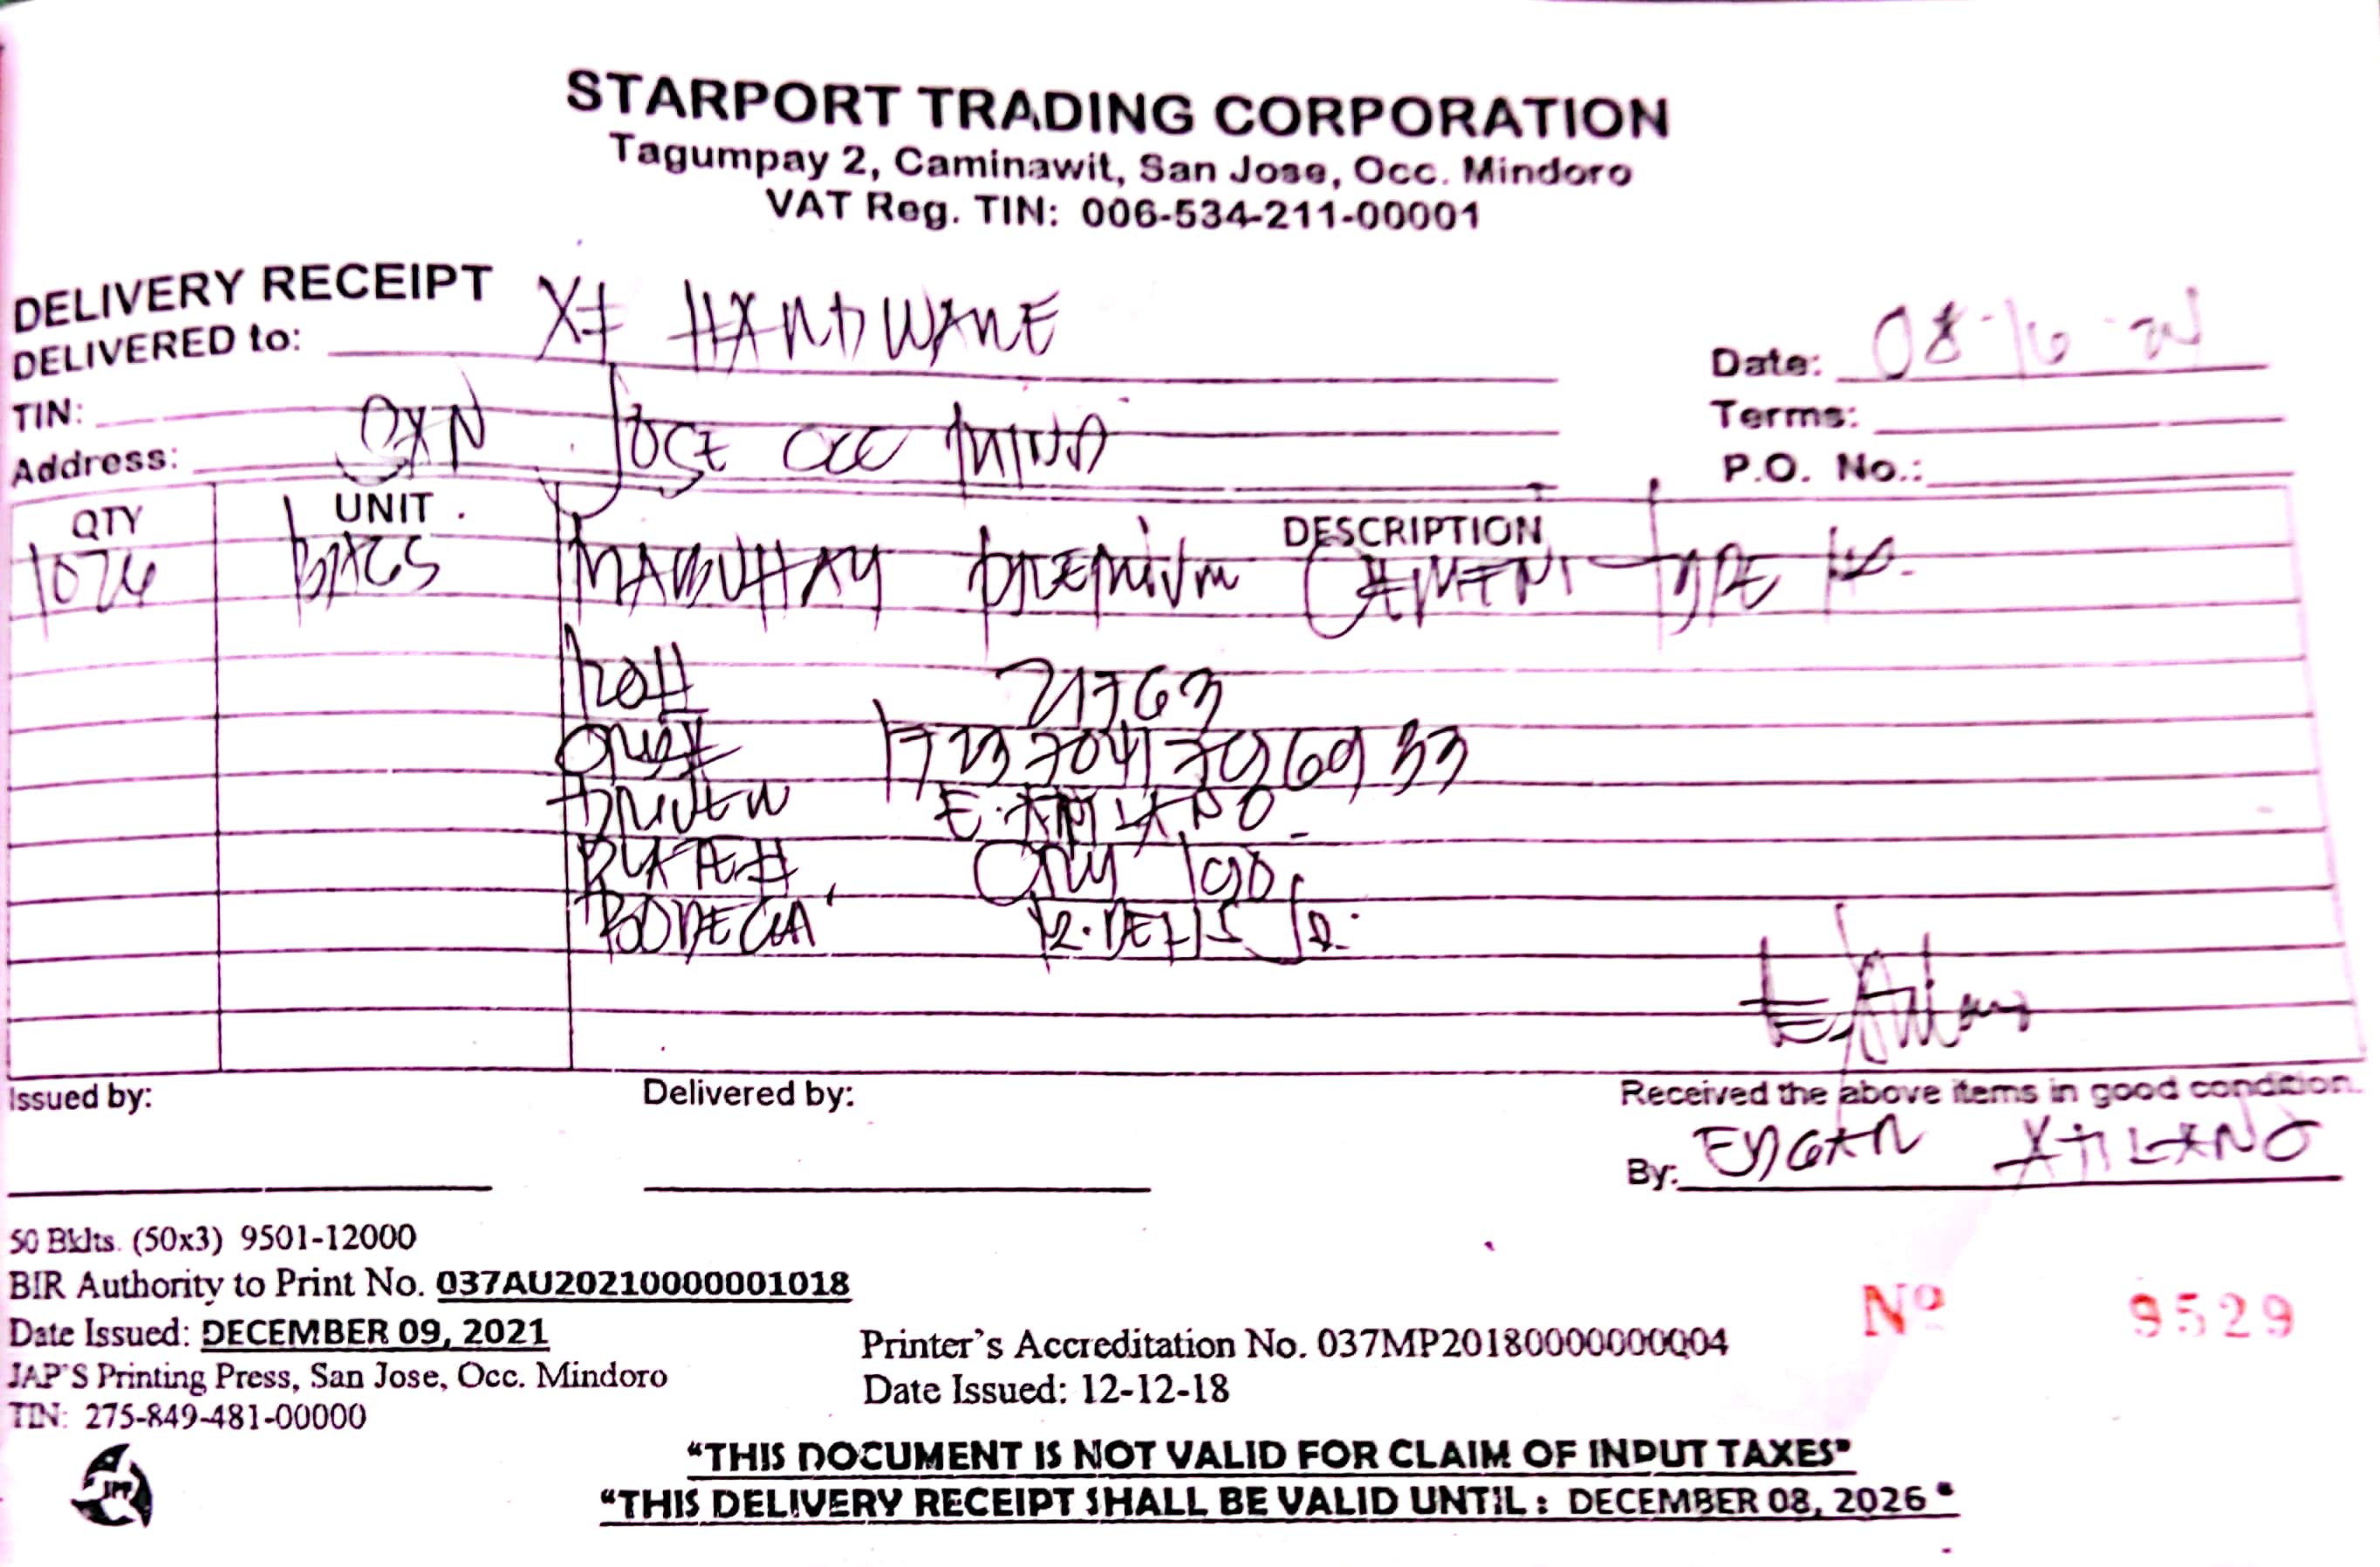 STARPORT TRADING CORPORATION
Tagumpay 2, Caminawit, San Jose, Occ. Mindoro
VAT Reg. TIN: 006-534-211-00001
DELIVERY RECEIPT
DELIVERED to: HARDWARE
Date: 08-16-24
TIN:
Terms:
Address: SAN JOSE OCC MIND
P.O. No.:
QTY UNIT DESCRIPTION
BAGS MABUHAY PREMIUM CEMENT TYPE
21763
DRIVER E. ATILANO
PLATE#
BODEGA
Issued by: Delivered by: Received the above items in good condition.
By: EDGAR ATILANO
50 Bklts. (50x3) 9501-12000
BIR Authority to Print No. 037AU20210000001018
Date Issued: DECEMBER 09, 2021
JAP'S Printing Press, San Jose, Occ. Mindoro
TIN: 275-849-481-00000
Printer's Accreditation No. 037MP20180000000004
Date Issued: 12-12-18
Nº 9529
JPP
"THIS DOCUMENT IS NOT VALID FOR CLAIM OF INPUT TAXES"
"THIS DELIVERY RECEIPT SHALL BE VALID UNTIL : DECEMBER 08, 2026"